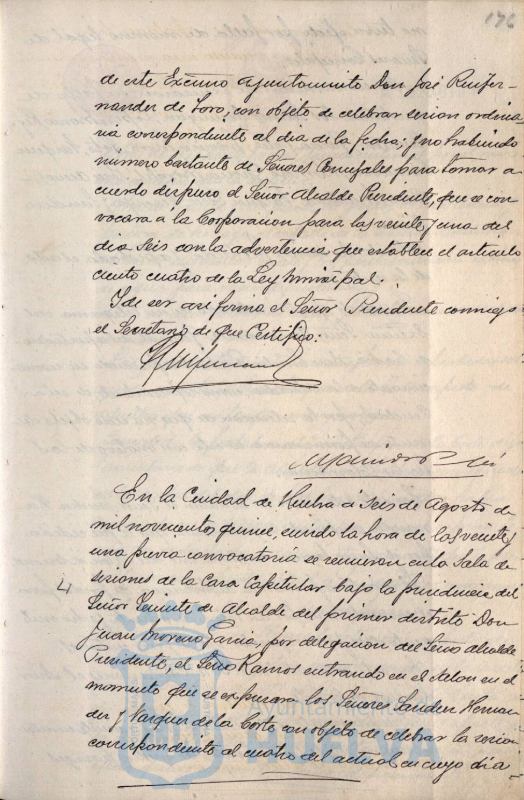 176
de este Excmo Ayuntamiento Don José Ruifer-
nandez de Toro, con objeto de celebrar sesion ordina
ria correspondiente al dia de la fecha; y no habiendo
numero bastante de Señores Concejales para tomar a
cuerdo dispuso el Señor Alcalde Presidente, que se con
vocara a la Corporacion para las veinte y una del
dia seis con la advertencia que establece el articulo
ciento cuatro de la Ley Municipal.
Y de ser asi firma el Señor Presidente conmigo
el Secretario de que Certifico:
En la Ciudad de Huelva á seis de Agosto de
mil novecientos quince, siendo la hora de las veinte y
una previa convocatoria se reunieron en la Sala de
sesiones de la Casa Capitular bajo la presidencia del
Señor Teniente de Alcalde del primer distrito Don
Juan Moreno Garcia, por delegacion del Señor Alcalde
Presidente, el Señor Ramos entrando en el Salon en el
momento que se expresara los Señores Sanchez Hernan
dez y Vazquez de la Corte con objeto de celebrar la sesion
correspondiente al cuatro del actual, en cuyo dia
Ayuntamiento de
HUELVA